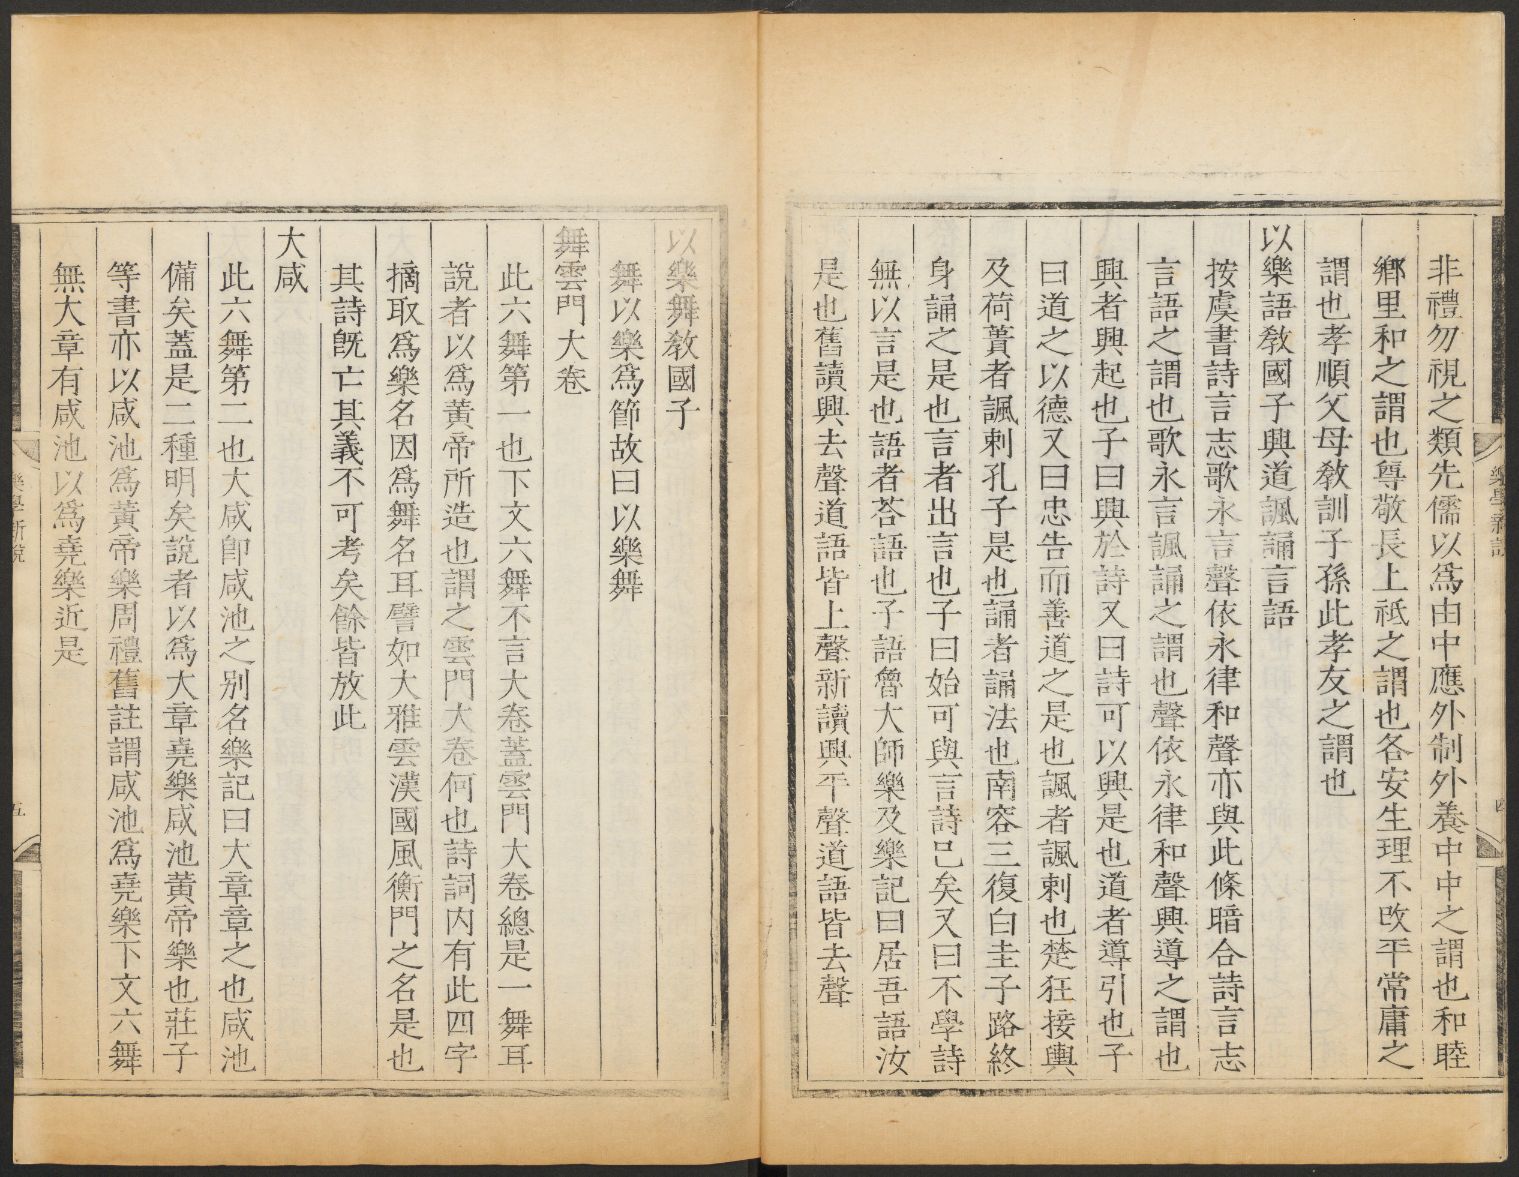 非禮勿視之類先儒以爲由中應外制外養中中之謂也和睦
鄉里和之謂也尊敬長上祗之謂也各安生理不改平常庸之
謂也孝順父母敎訓子孫此孝友之謂也
以樂語敎國子興道諷誦言語
按虞書詩言志歌永言聲依永律和聲亦與此條暗合詩言志
言語之謂也歌永言諷誦之謂也聲依永律和聲興導之謂也
興者興起也子曰興於詩又曰詩可以興是也道者導引也子
曰道之以德又曰忠告而善道之是也諷者諷刺也楚狂接輿
及荷蕢者諷刺孔子是也誦者誦法也南容三復白圭子路終
身誦之是也言者出言也子曰始可與言詩已矣又曰不學詩
無以言是也語者荅語也子語魯大師樂及樂記曰居吾語汝
是也舊讀興去聲道語皆上聲新讀興平聲道語皆去聲
樂學新說
四
以樂舞敎國子
舞以樂爲節故曰以樂舞
舞雲門大卷
此六舞第一也下文六舞不言大卷蓋雲門大卷總是一舞耳
說者以爲黃帝所造也謂之雲門大卷何也詩詞內有此四字
摘取爲樂名因爲舞名耳譬如大雅雲漢國風衡門之名是也
其詩旣亡其義不可考矣餘皆放此
大咸
此六舞第二也大咸卽咸池之别名樂記曰大章章之也咸池
備矣蓋是二種明矣說者以爲大章堯樂咸池黃帝樂也莊子
等書亦以咸池爲黃帝樂周禮舊註謂咸池爲堯樂下文六舞
無大章有咸池以爲堯樂近是
樂學新說
五